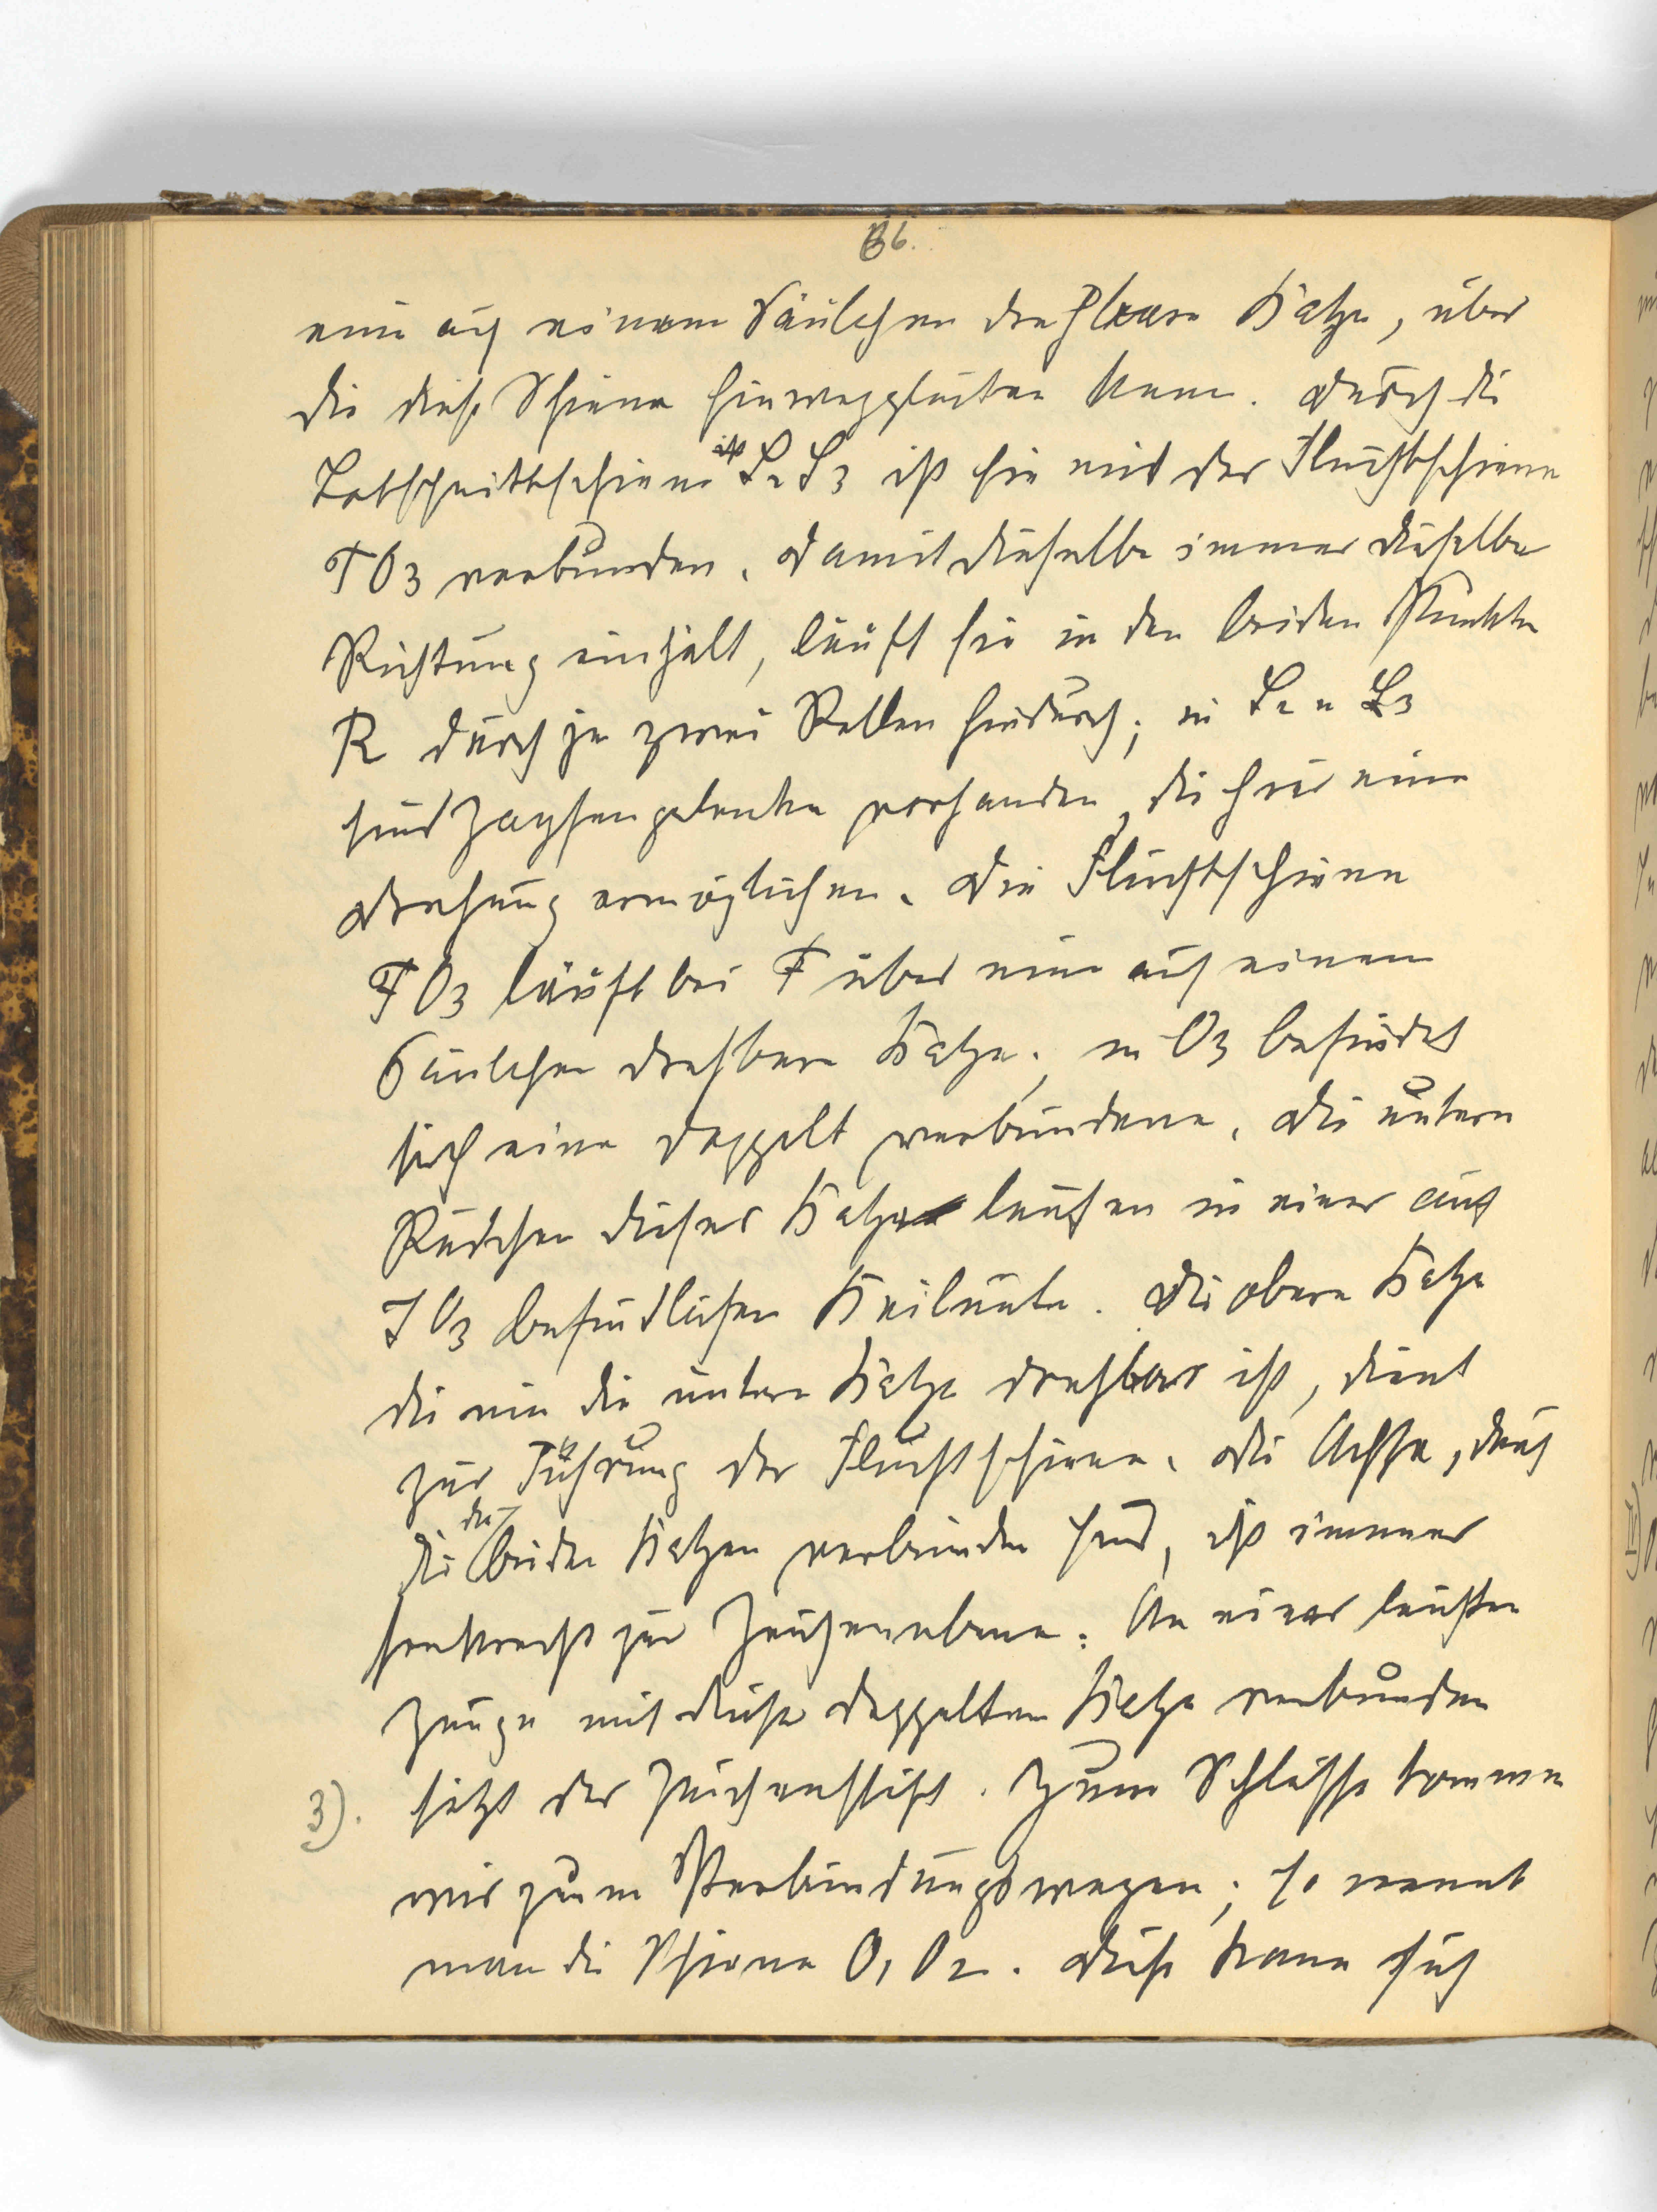 86.
eine auf einem Säulchen drehbare Katze, über
die diese Schiene hinweggleiten kann. Durch die
Lotschnittschiene S2 S3 ist sie mit der Fluchtschiene
FO3 verbunden. Damit dieselbe immer dieselbe
Richtung einhält, läuft sie in den beiden Punkten
R durch je zwei Rollen hindurch; in S2 u S3
sind Zapfengelenke vorhanden, die hier eine
Drehung ermöglichen. Die Fluchtschiene
FO3 läuft bei F über eine auf einem
Säulchen drehbare Katze; in O3 befindet
sich eine doppelt verbundene. Die untern
Rädchen dieser Katze laufen in einer auf
JO3 befindlichen Keilnute. Die obere Katze
die um die untere Katze drehbar ist, dient
zur Führung der Fluchtschiene. Die Achse, durch
die die beiden Katzen verbunden sind, ist immer
senkrecht zur Zeichenebene. An einer leichten
Zunge mit dieser doppelten Katze verbunden
3). sitzt der Zeichenstift. Zum Schlusse kommen
wir zum Verbindungswagen; so nennt
man die Schiene O1 O2. Diese kann sich